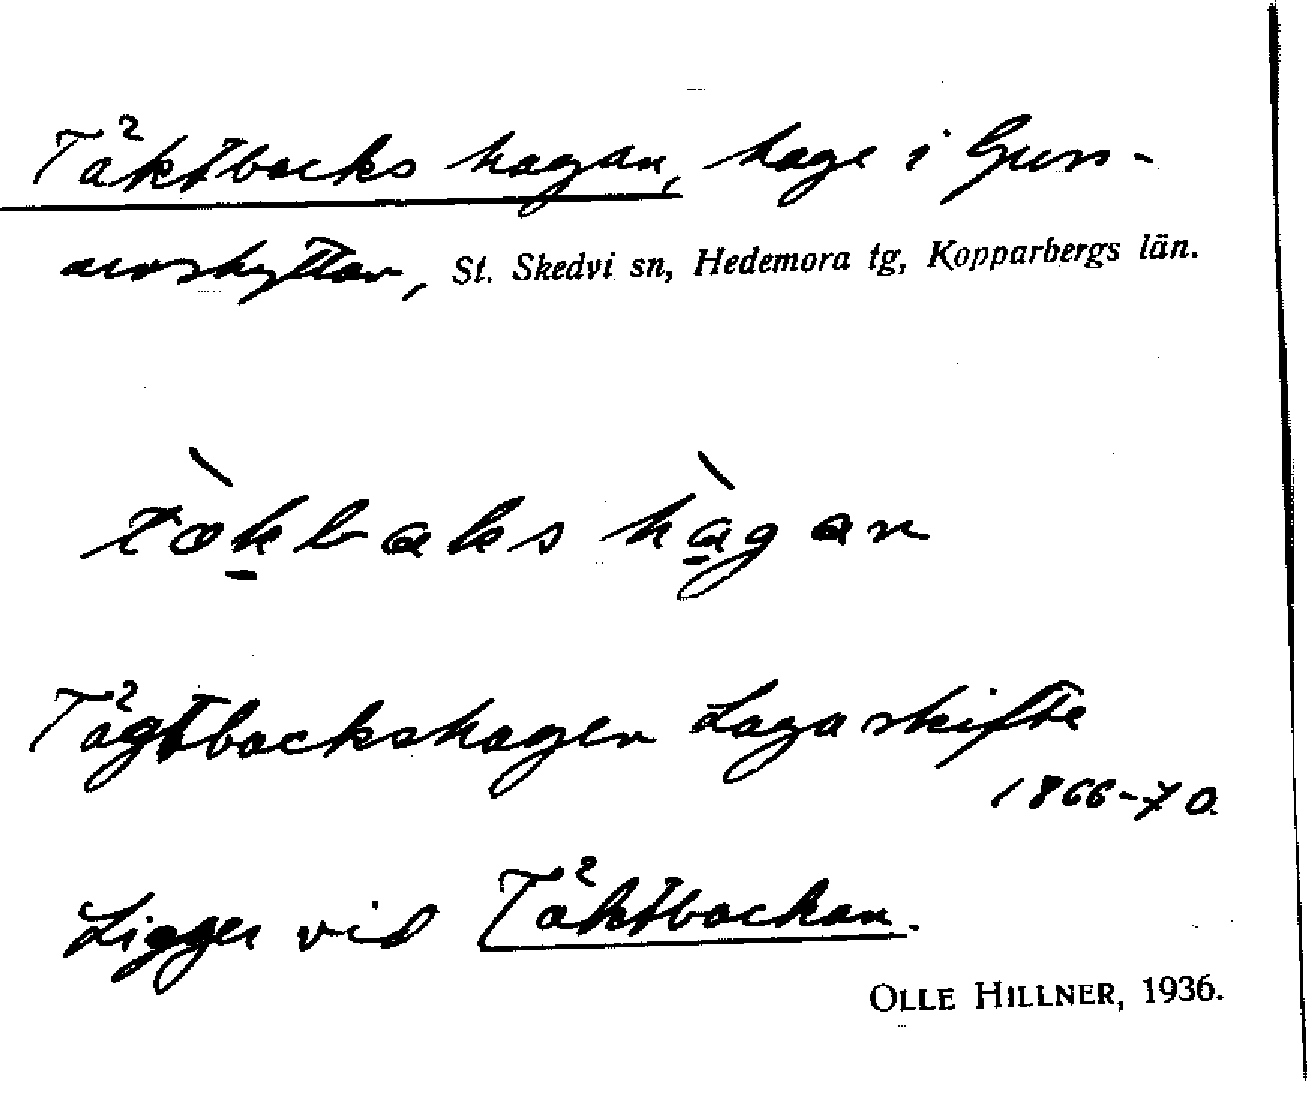 Täktbacks hagan, hage i Gun-
narshyttan, St. Skedvi sn, Hedemora tg, Kopparbergs län.
tækbaks hagan
Tägtbackshagen Laga skifte
1866-70.
Ligger vid Täktbackan.
OLLE HILLNER, 1936.